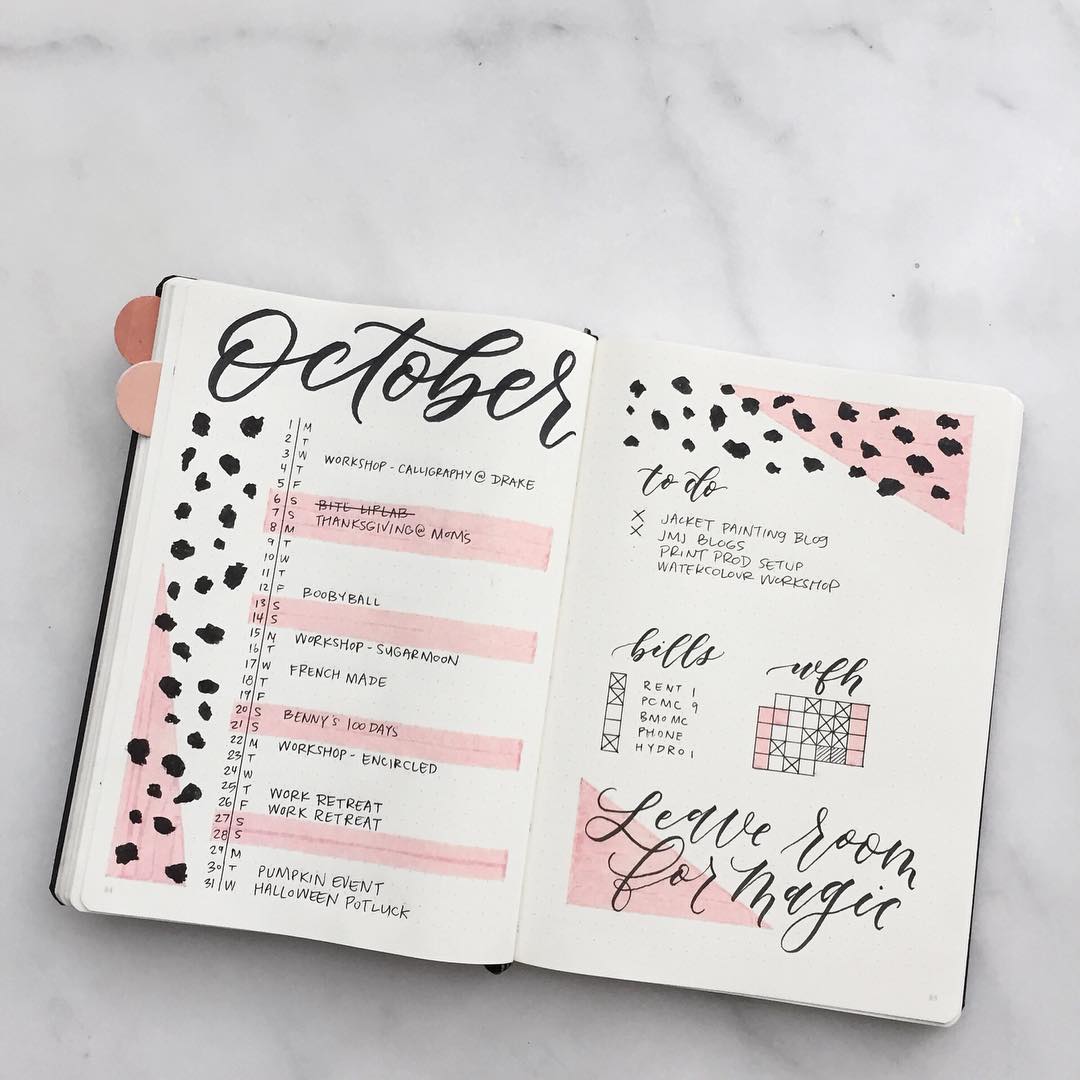 October
1 M
2 T
3 W WORKSHOP - CALLIGRAPHY @ DRAKE
4 T
5 F
6 S BITE LIPLAB
7 S THANKSGIVING @ MOMS
8 M
9 T
10 W
11 T
12 F BOOBYBALL
13 S
14 S
15 M WORKSHOP - SUGARMOON
16 T
17 W FRENCH MADE
18 T
19 F
20 S BENNY'S 100 DAYS
21 S
22 M WORKSHOP - ENCIRCLED
23 T
24 W
25 T WORK RETREAT
26 F WORK RETREAT
27 S
28 S
29 M
30 T PUMPKIN EVENT
31 W HALLOWEEN POTLUCK
84
to do
X JACKET PAINTING BLOG
X JMJ BLOGS
PRINT PROD SETUP
WATERCOLOUR WORKSHOP
bills
RENT 1
PCMC 9
BMO MC
PHONE
HYDRO 1
wfh
Leave room
for magic
85